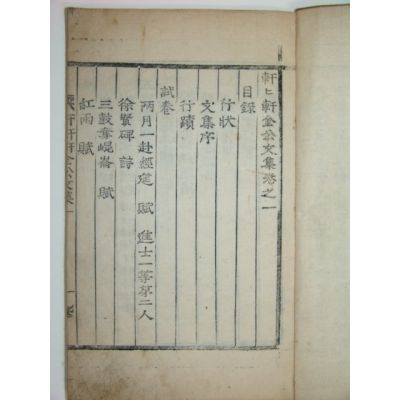 軒〻軒金公文集卷之一
目錄
行狀
文集序
行蹟
試卷
兩月一赴經筵 賦 進士一等第二人
徐賢碑 詩
三鼓奪崐崙 賦
紅雨 賦
軒軒金公文集 一